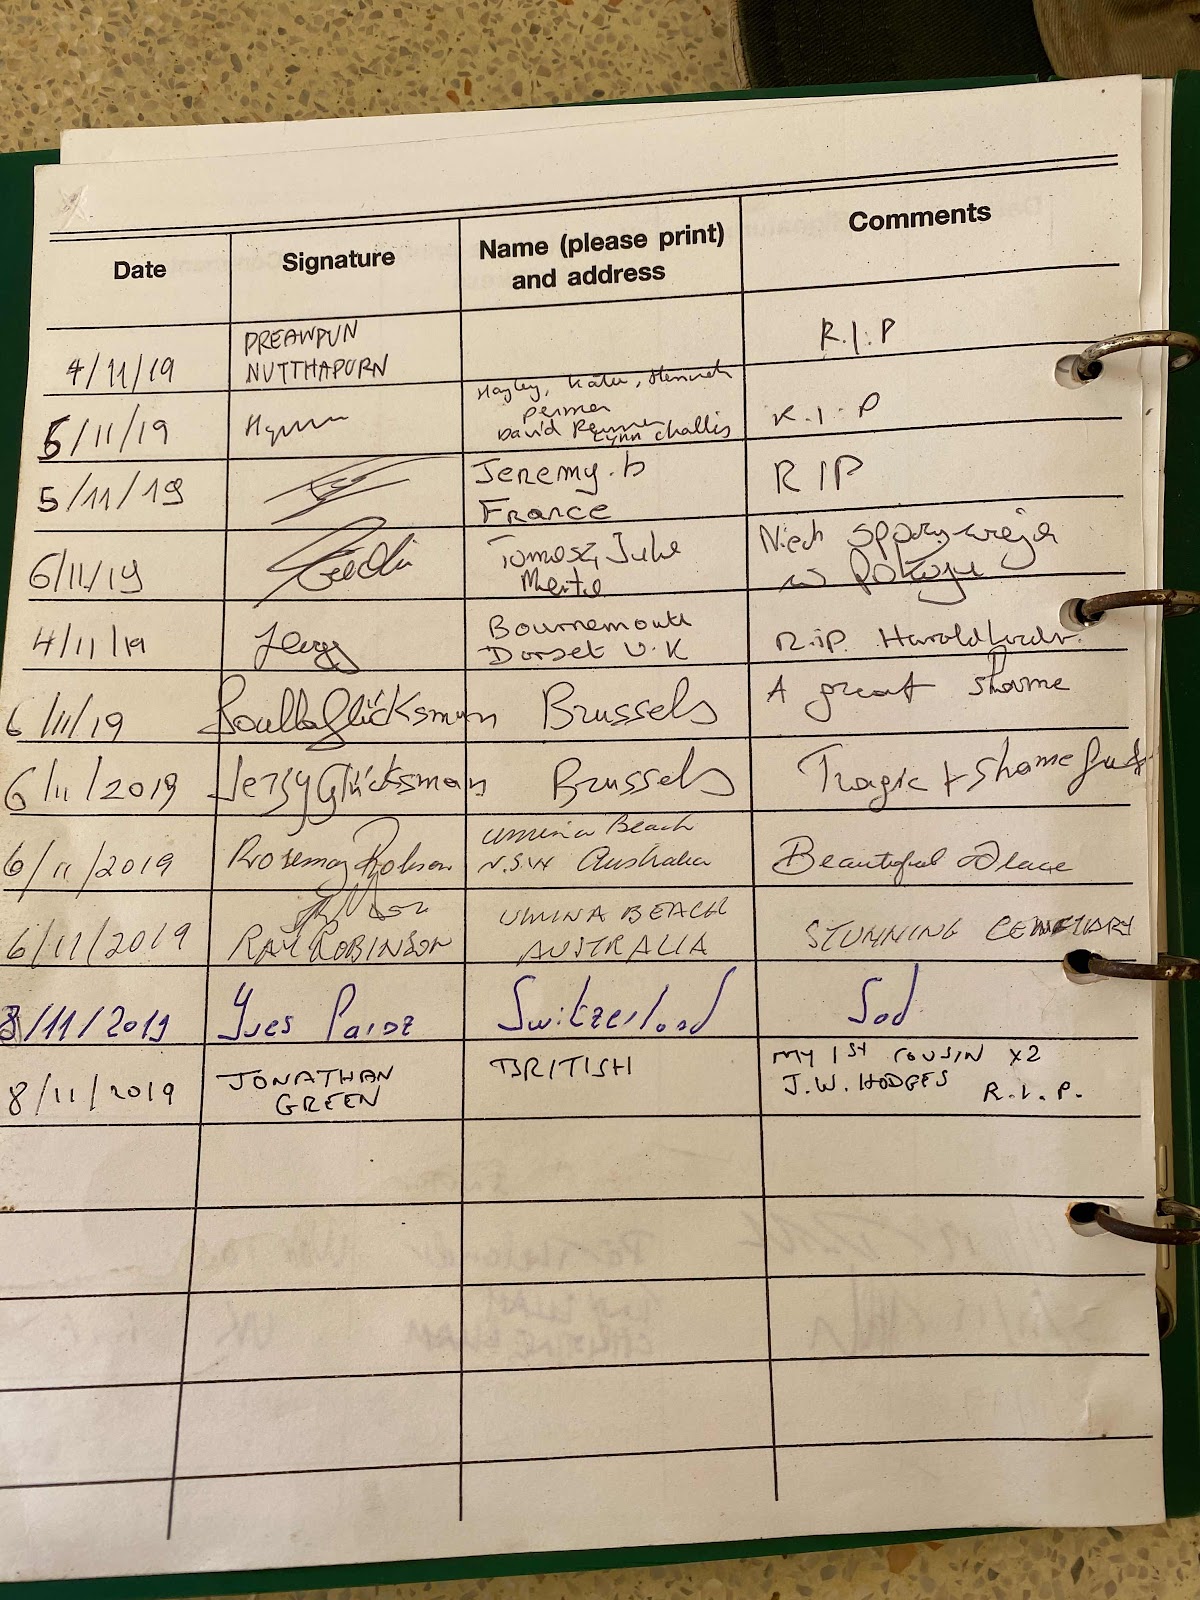 Date Signature Name (please print) Comments
and address
PREAWPUN
4/11/19 NUTTHAPORN R.I.P
Hayley, Kate,
5/11/19 David Lynn Challis R.I.P
5/11/19 Jeremy.b RIP
France
6/11/19 Niech spoczywają
w Pokoju
4/11/19 Bournemouth
Dorset U.K R.iP. Harold
6/11/19 Glücksman Brussels A great shame
6/11/2019 Jerzy Glücksman Brussels Tragic + Shameful
Umina Beach
6/11/2019 Rosemary Robinson N.S.W Australia Beautiful Place
UMINA BEACH
6/11/2019 RAY ROBINSON AUSTRALIA STUNNING
8/11/2019 Yves Switzerland Sad
BRITISH MY 1ST COUSIN X2
8/11/2019 JONATHAN J.W. HODGES
GREEN R.I.P.